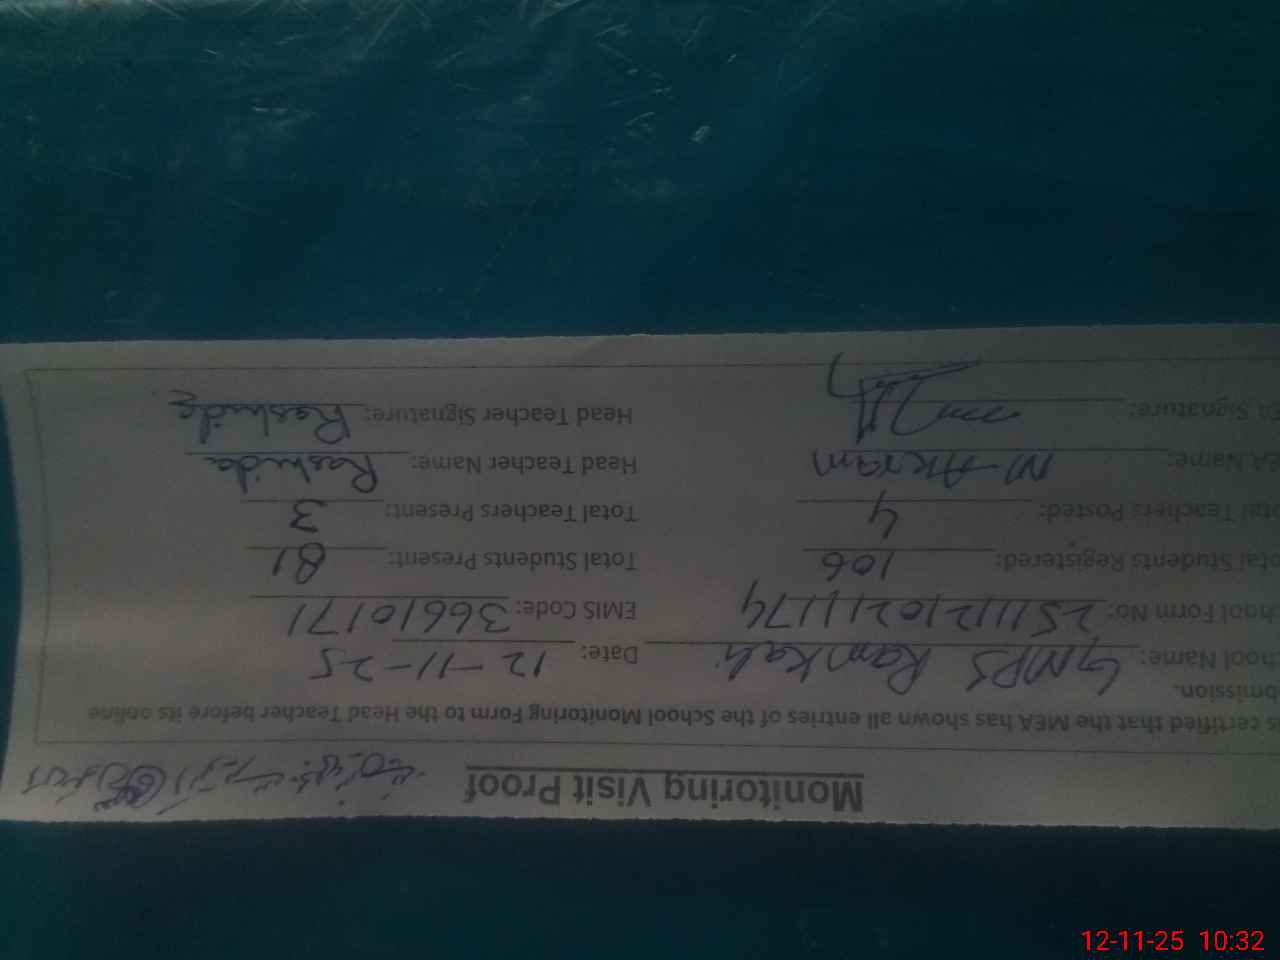 Monitoring Visit Proof
s certified that the MEA has shown all entries of the School Monitoring Form to the Head Teacher before its online
bmission.
chool Name: GMPS Ramkali Date: 12-11-25
chool Form No: 25111210211174 EMIS Code: 36610171
otal Students Registered: 106 Total Students Present: 81
otal Teachers Posted: 4 Total Teachers Present: 3
EA Name: M. Akram Head Teacher Name: Rashida
EA Signature: Head Teacher Signature: Rashida
12-11-25 10:32